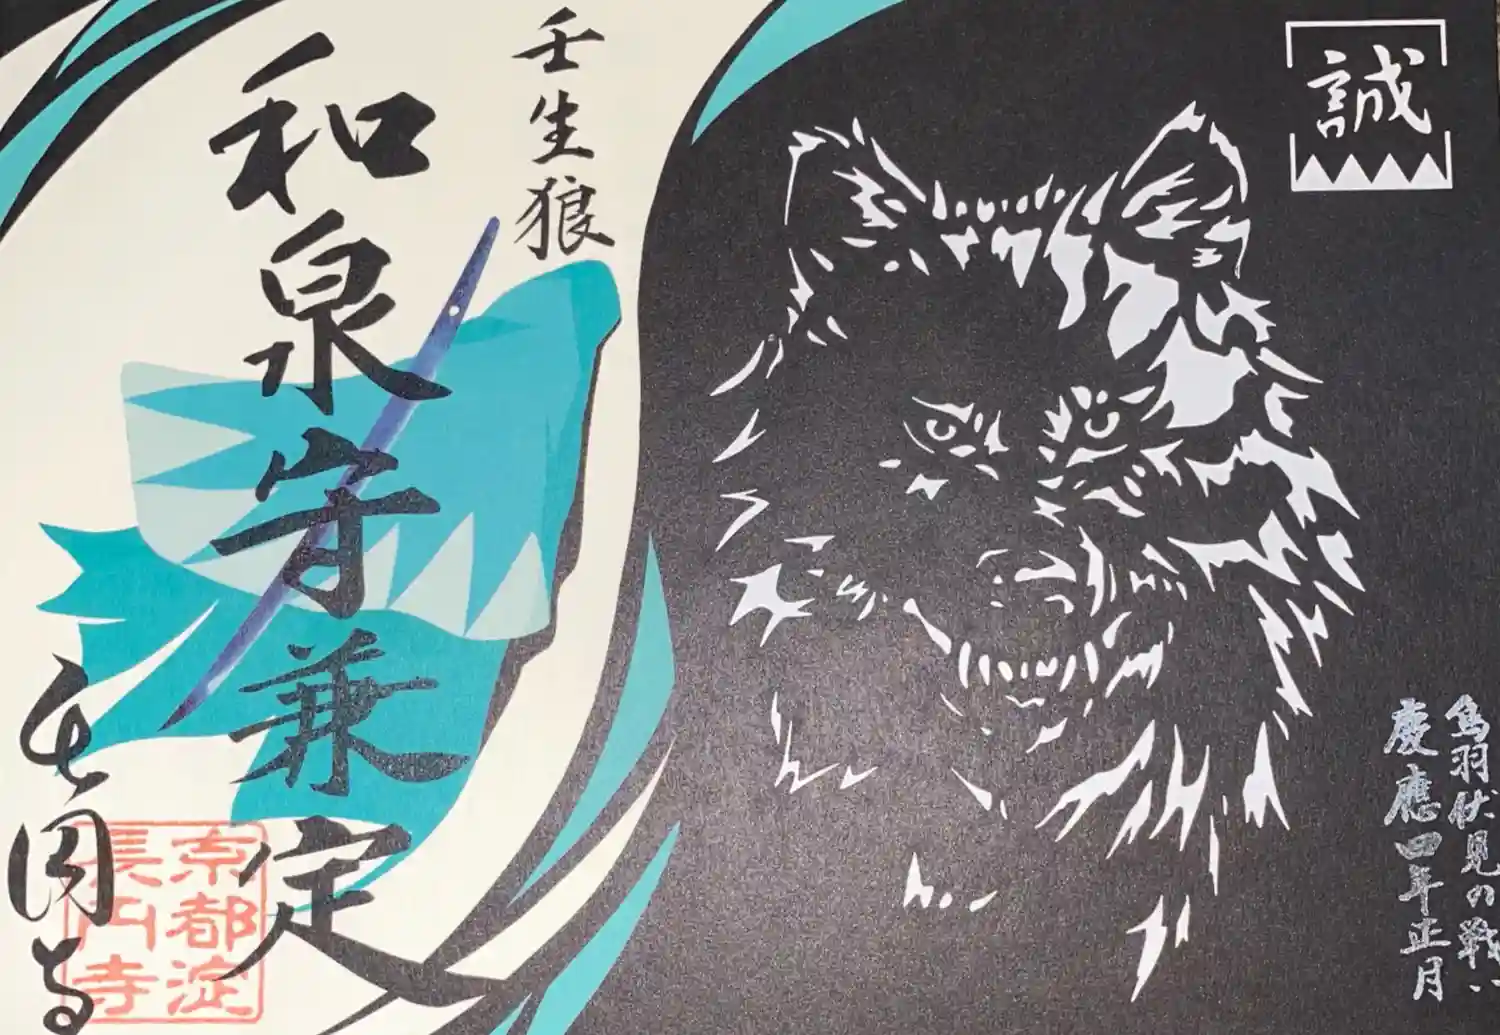 誠
鳥羽伏見の戦い
慶應四年正月
壬生狼
和泉守兼定
長円寺
京都淀
長円寺